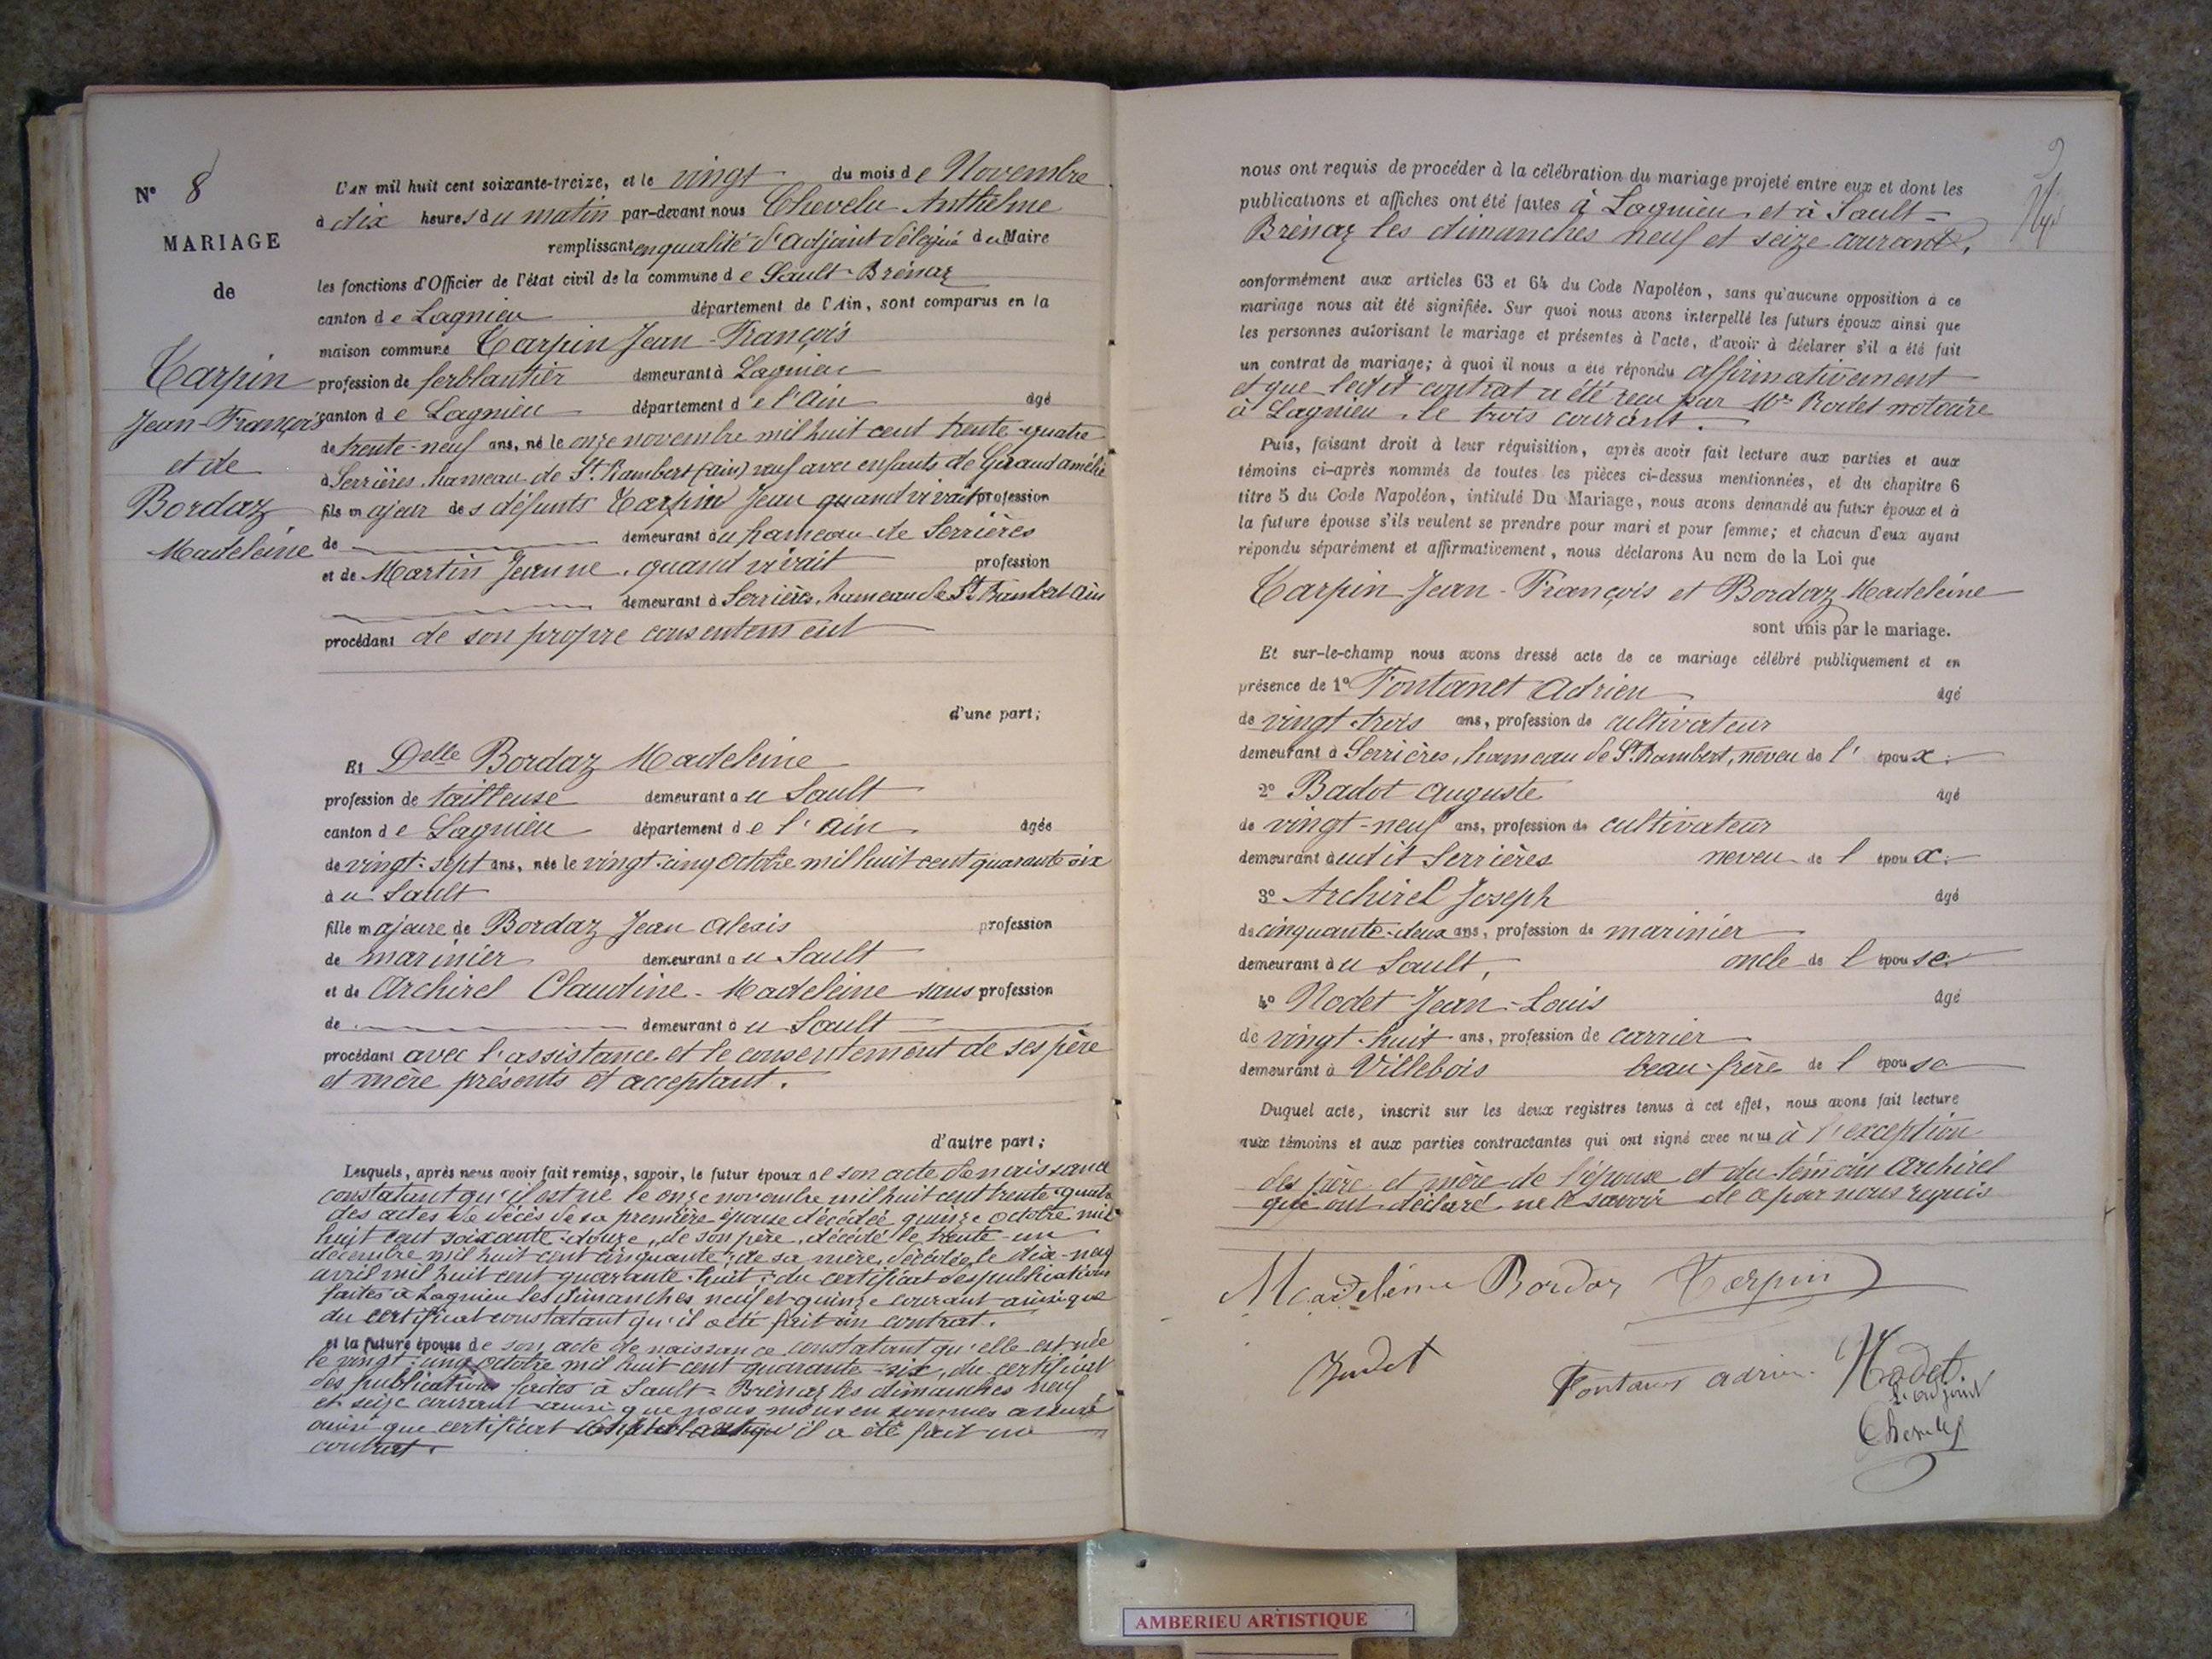 N° 8
MARIAGE
de
Carpin
Jean-François
et de
Bordaz
Madeleine
L'AN mil huit cent soixante-treize, et le vingt du mois de Novembre
à dix heures du matin par-devant nous Chevelu Anthelme
remplissant en qualité d'adjoint délégué du Maire
les fonctions d'Officier de l'état civil de la commune de Sault-Brénaz
canton de Lagnieu département de l'Ain, sont comparus en la
maison commune Carpin Jean-François
profession de ferblantier demeurant à Lagnieu
canton de Lagnieu département de l'Ain âgé
de trente-neuf ans, né le onze novembre mil huit cent trente-quatre
à Serrières, hameau de St Rambert (ain) veuf avec enfants de Giraud amélie
fils majeur des défunts Carpin Jean quand vivait profession
de demeurant au hameau de Serrières
et de Martin Jeanne, quand vivait profession
demeurant à Serrières, hameau de St Rambert Ain
procédant de son propre consentement
d'une part;
Et Delle Bordaz Madeleine
profession de tailleuse demeurant au Sault
canton de Lagnieu département de l'Ain âgée
de vingt-sept ans, née le vingt-cinq Octobre mil huit cent quarante six
au Sault
fille majeure de Bordaz Jean Alexis profession
de marinier demeurant au Sault
et de Archirel Claudine-Madeleine sans profession
de demeurant au Sault
procédant avec l'assistance et le consentement de ses père
et mère présents et acceptant.
d'autre part;
Lesquels, après nous avoir fait remise, savoir, le futur époux de son acte de naissance
constatant qu'il est né le onze novembre mil huit cent trente-quatre
des actes de décès de sa première épouse décédée quinze octobre mil
huit cent soixante-douze, de son père, décédé le trente-un
décembre mil huit cent cinquante; de sa mère, décédée le dix-neuf
avril mil huit cent quarante-huit; du certificat des publications
faites à Lagnieu les dimanches neuf et quinze courant ainsi que
du certificat constatant qu'il a été fait un contrat.
et la future épouse de son acte de naissance constatant qu'elle est née
le vingt-cinq Octobre mil huit cent quarante-six, du certificat
des publications faites à Sault-Brénaz les dimanches neuf
et seize courant ainsi que nous nous en sommes assuré
ainsi que certificat constatant qu'il a été fait un
contrat.
nous ont requis de procéder à la célébration du mariage projeté entre eux et dont les
publications et affiches ont été faites à Lagnieu et à Sault-
Brénaz les dimanches neuf et seize courant.
conformément aux articles 63 et 64 du Code Napoléon, sans qu'aucune opposition à ce
mariage nous ait été signifiée. Sur quoi nous avons interpellé les futurs époux ainsi que
les personnes autorisant le mariage et présentes à l'acte, d'avoir à déclarer s'il a été fait
un contrat de mariage; à quoi il nous a été répondu affirmativement
et que ledit contrat a été reçu par Me Rodet notaire
à Lagnieu, le trois courant.
Puis, faisant droit à leur réquisition, après avoir fait lecture aux parties et aux
témoins ci-après nommés de toutes les pièces ci-dessus mentionnées, et du chapitre 6
titre 5 du Code Napoléon, intitulé Du Mariage, nous avons demandé au futur époux et à
la future épouse s'ils veulent se prendre pour mari et pour femme; et chacun d'eux ayant
répondu séparément et affirmativement, nous déclarons Au nom de la Loi que
Carpin Jean-François et Bordaz Madeleine
sont unis par le mariage.
Et sur-le-champ nous avons dressé acte de ce mariage célébré publiquement et en
présence de 1° Fontanet Adrien âgé
de vingt-trois ans, profession de cultivateur
demeurant à Serrières, hameau de St Rambert, neveu de l'époux.
2° Badot Auguste âgé
de vingt-neuf ans, profession de cultivateur
demeurant audit Serrières neveu de l époux.
3° Archirel Joseph âgé
de cinquante-deux ans, profession de marinier
demeurant au Sault, oncle de l épouse.
4° Nodet Jean-Louis âgé
de vingt-huit ans, profession de carrier
demeurant à Villebois beau-frère de l épouse
Duquel acte, inscrit sur les deux registres tenus à cet effet, nous avons fait lecture
aux témoins et aux parties contractantes qui ont signé avec nous à l'exception
des père et mère de l'épouse et du témoin Archirel
qui ont déclaré ne le savoir de ce par nous requis
Madeleine Bordaz Carpin
Fontanet adrien Nodet
L'adjoint
Chevelu
AMBERIEU ARTISTIQUE